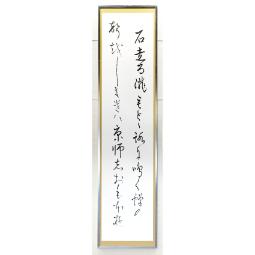 石走る瀧もとゝ路に鳴く蝉の
聲越しきけハ京師志おもほゆ